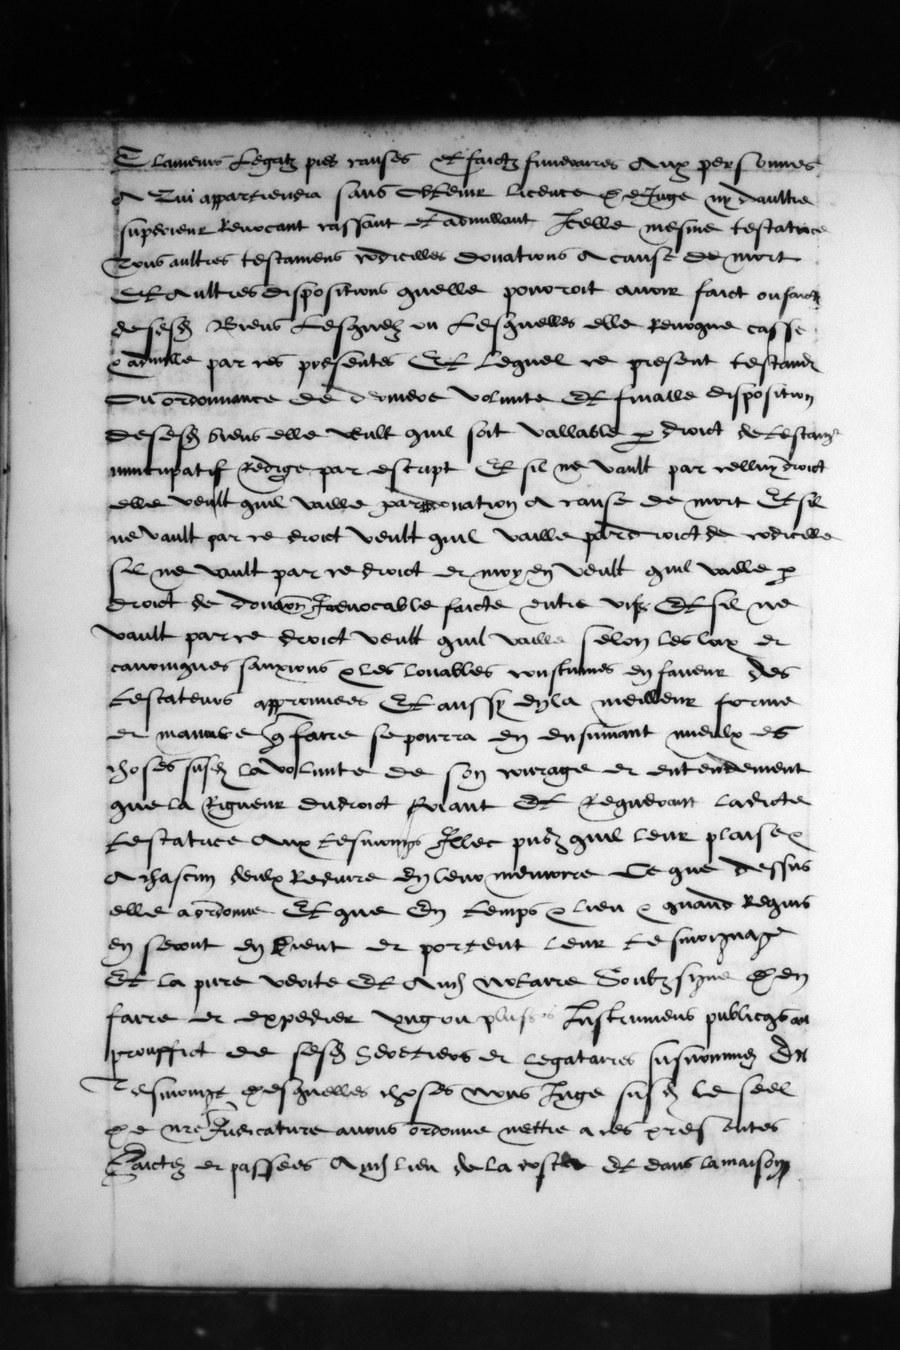 Clameurs legatz pies causes et faictz funeraires aux personnes
A Qui appartiendra sans obtenir licence de Juge ny daultre
superieur Revocant cassant et adnullant Icelle mesme testatrice
Tous aultres testamens codicilles donations a cause de mort
Et Aultres dispositions quelle pouroit avoir faict ou faictz
de sesd biens Lesquelz ou Lesquelles elle Revoque casse
& adnulle par ces presentes Et Lequel ce present testamt
Ou ordonnance de derniere volunte Et finalle disposition
de sesd biens elle veult quil soit vallable p droict de testamt
nuncupatif Redige par escript Et sil ne vault par celluy droict
elle veult quil vaille par donation A cause de mort Et sil
ne vault par ce droict veult quil vaille par droict de codicille
sil ne vault par ce droict et moyen veult quil vaille p
droict de donaon Irevocable faicte entre vifz Et sil ne
vault par ce droict veult quil vaille selon les loix et
canoniques sanxions & les louables coustumes en faveur des
testateurs approuvees Et aussy en la meilleur forme
et maniere q faire se pourra en ensuivant mieulx es
choses susd la volunte de son courage et entendement
que la Rigueur du droict Priant Et Requerant ladicte
testatrice Aux tesmoings Illec pnsz quil leur plaise &
A chascun deulx Reduire en leur memoire Ce que dessus
elle a ordonne Et que en temps & lieu & quand Requis
en seront en dient et portent leur tesmoignage
Et la pure verite Et Aud Notaire Soubzsigne den
faire et expedier ung ou pluss Instrumens publicqs au
prouffict de sesd heretiers et legataires susnommez En
Tesmoingt desquelles choses Nous Juge susd le seel
de nre Judicature avons ordonne mettre a ces presentes
Faictes et passees Aud lieu de la coste Et dans la maison